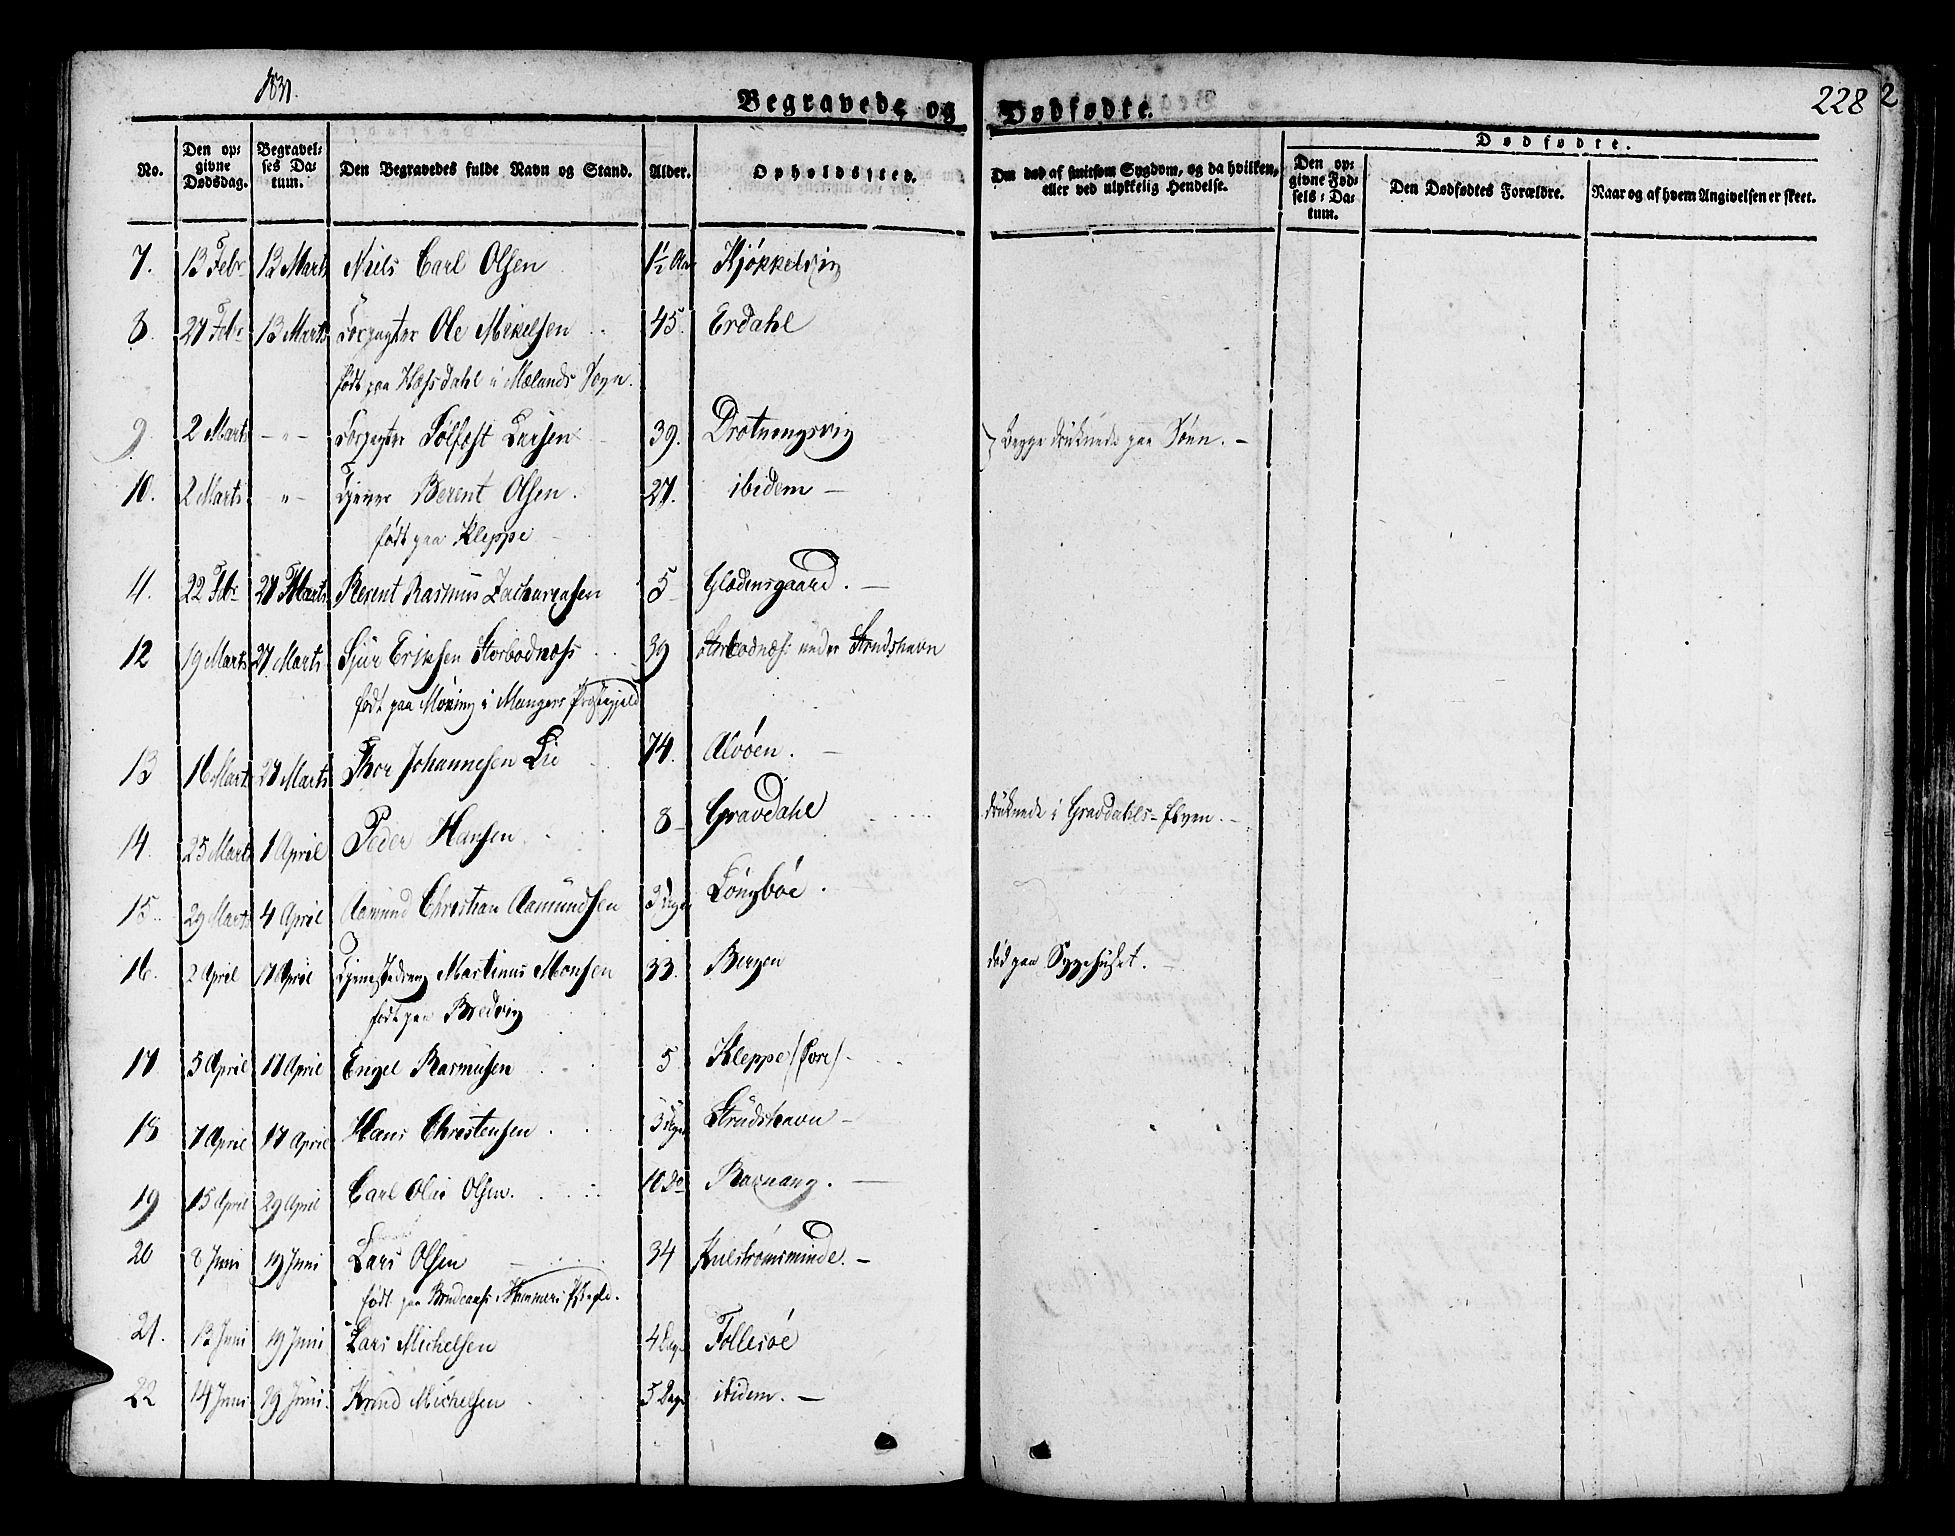 1831.
Begravede og Dødfødte.
228
2
Dødfødte.
No.
Den opgivne Dødsdag.
Begravelses Datum.
Den Begravedes fulde Navn og Stand.
Alder.
Opholdssted.
Om død af smitsom Sygdom, og da hvilken, eller ved ulykkelig Hendelse.
Den opgivne Fødsels-Datum.
Den Dødfødtes Forældre.
Naar og af hvem Angivelsen er skeet.
7. 13 Febr 13 Marts Niels Carl Olsen 1½ Aar Kjøkkelvig
8. 27 Febr 13 Marts Forpagter Ole Mikelsen 45. Erdahl
født paa Hofsdahl i Mælands Sogn.
9. 2 Marts — „ — Forpagter Tolfest Larsen 39. Drotningsvig } begge druknede paa Søen. —
10. 2 Marts „ — Tjener Berent Olsen. 27. ibidem —
født paa Kleppe
11. 22 Febr 27 Marts Berent Rasmus Zachariasen 5 Glædensgaard. —
12 19 Marts 27 Marts Sjur Eriksen Storbodnæss 39 Storbodnæss under Strudshavn
født paa i Mangers Præstegjeld
13 16 Marts 27 Marts Thor Johannesen Lie 74. Alvøen. —
14. 25 Marts 1 April Peder Hansen 8 Gravdahl druknede i Gravdahls-Elven. —
15. 29 Marts 4 April Aamund Christian Aamundsen 3 Dage Lóngbøe.
16. 2 April 17 April Tjenestedreng Martinus Monsen 33. Bergen død paa Sygehuset. —
født paa Bredvig
17 3 April 17 April Engel Rasmusen 5 Kleppe
18 7 April 17 April Hans Christensen 3 Strudshavn —
19 15 April 29 April Carl Olis Olsen. 10 Do —
20 8 Juni 19 Juni Lars Olsen 34 —
født paa Hammers
21. 13 Juni 19 Juni Lars Michelsen 4 Dage Follesøe
22 14 Juni 29 Juni. Knud Michelsen 5 Dage ibidem. —